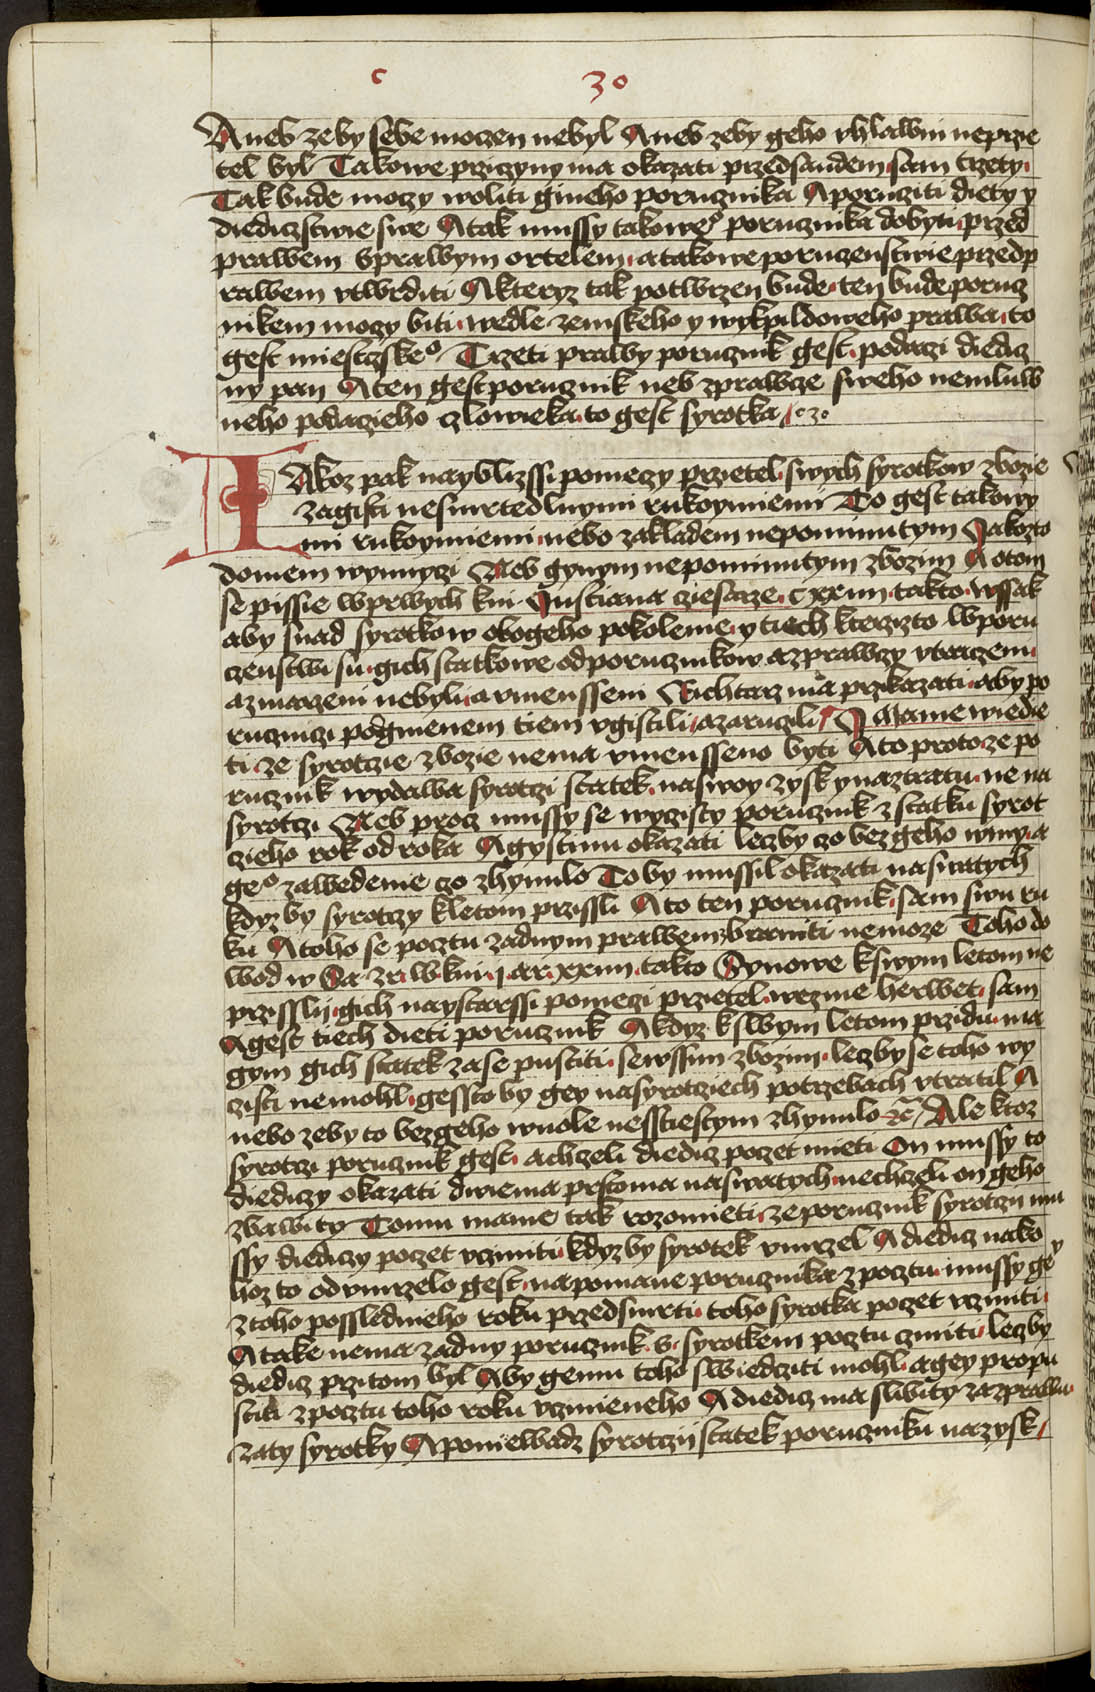 c 30
Aneb zeby sebe moczen nebyl Aneb zeby geho vhlawni neprzie
tel byl Takowe prziczyny ma okazati przedsaudem sam trzety
Tak bude moczy woliti gineho porucznika A porucziti diety y
diedicztwie swe A tak mussy takoweº porucznika dobyti przed
prawem vprawym ortelem atakowe poruczenstwie przedp
rawem vtwrditi A kteryz tak potwrzen bude ten bude porucz
nikem moczy biti wedle zemskeho y wykpildoweho prawa to
gest miestskeº Trzeti prawy porucznik gest podaczi diedicz
ny pan A ten gest porucznik neb zprawcze sweho nemluw
neho podacieho czlowieka to gest syrotka
IAkoz pak nayblizssi pomeczy przietel swych syrotkow zbozie
zagisti nesmrtedlnymi rukoymiemi To gest takowy
mi rukoymiemi nebo zakladem nepominutym Jakozto
domem wynnyczi Neb gynym nepominutym zbozim A otom
se pissie wprwych kni Justiana cziesarze c xxiiii takto wssak
aby snad syrotkow obogeho pokolenie y tiech kterzizto wporu
czenstwi su gich statkowe odporucznikow a zprawczy vtraczeni
a zmarzeni nebyli a vmensseni Richtarz ma przikazati aby po
ruczniczi podgmenem tiem vgistili a zaruczili Mame wiedie
ti ze syrotczie zbozie nema vmensseno byti A to protoze po
rucznik wydawa syrotczi statek naswoy zysk y naztratu ne na
syrotczi Neb procz mussy se wyczisty porucznik z statku syrot
czieho rok odroka A gystinu okazati leczby czo bez geho winy a
geº zawedenie czo zhynulo To by mussil okazati naswatych
kdyz by syrotczy kletom przissli A to ten porucznik sam swu ru
ku A toho se pocztu zadnym prawem zbraniti nemoze Toho do
wod w Sa zr w kni j ar xxiiii takto Synowe kswym letom ne
przisslij gich naystarssi pomezi przietel wezme herwet sam
A gest tiech dieti porucznik A kdyz kswym letom przidu ma
gym gich statek zase pustiti sewssim zbozim leczby se toho wy
zisti nemohl gessto by gey nasyrotcziech potrzebach vtratil A
nebo zeby to bez geho wuole nesstiestym zhynulo rc Ale ktoz
syrotczi porucznik gest a chzeli diedicz poczet mieti On mussy to
diediczy okazati dwiema prstoma naswatych nechzeli on geho
zbawity Tomu mame tak rozomieti ze porucznik syrotczii mu
ssy diediczy poczet vcziniti kdyz by syrotek vmrzel A diedicz nako
hoz to odvmrzelo gest napomane porucznika z pocztu mussy gey
z toho poslednieho roku przedsmrti toho syrotka poczet vcziniti
A take nema zadny porucznik s syrotkem pocztu cziniti leczby
diedicz przitom byl Aby gemu toho swiedcziti mohl a gey propu
stil z pocztu toho roku vczinieneho A diedicz ma slibity zazprawu
zaty syrotky A poniewadz syrotczii statek porucznikii nazysk